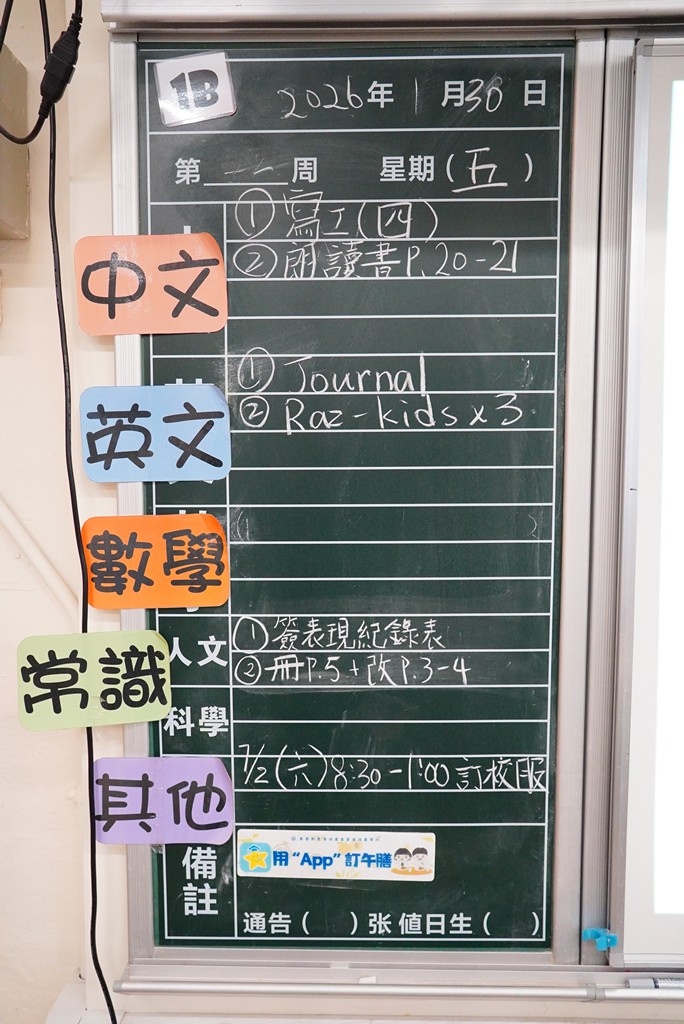 1B
2026年 1月30日
第 周 星期(五)
中文
①寫工(四)
②朗讀書P.20-21
英文
①Journal
②Raz-kids x 3
數學
常識
人文
①簽表現紀錄表
②冊P.5+改P.3-4
科學
其他
7/2(六)8:30-1:00訂校服
備註
用“App”訂午膳
通告( )张 值日生( )